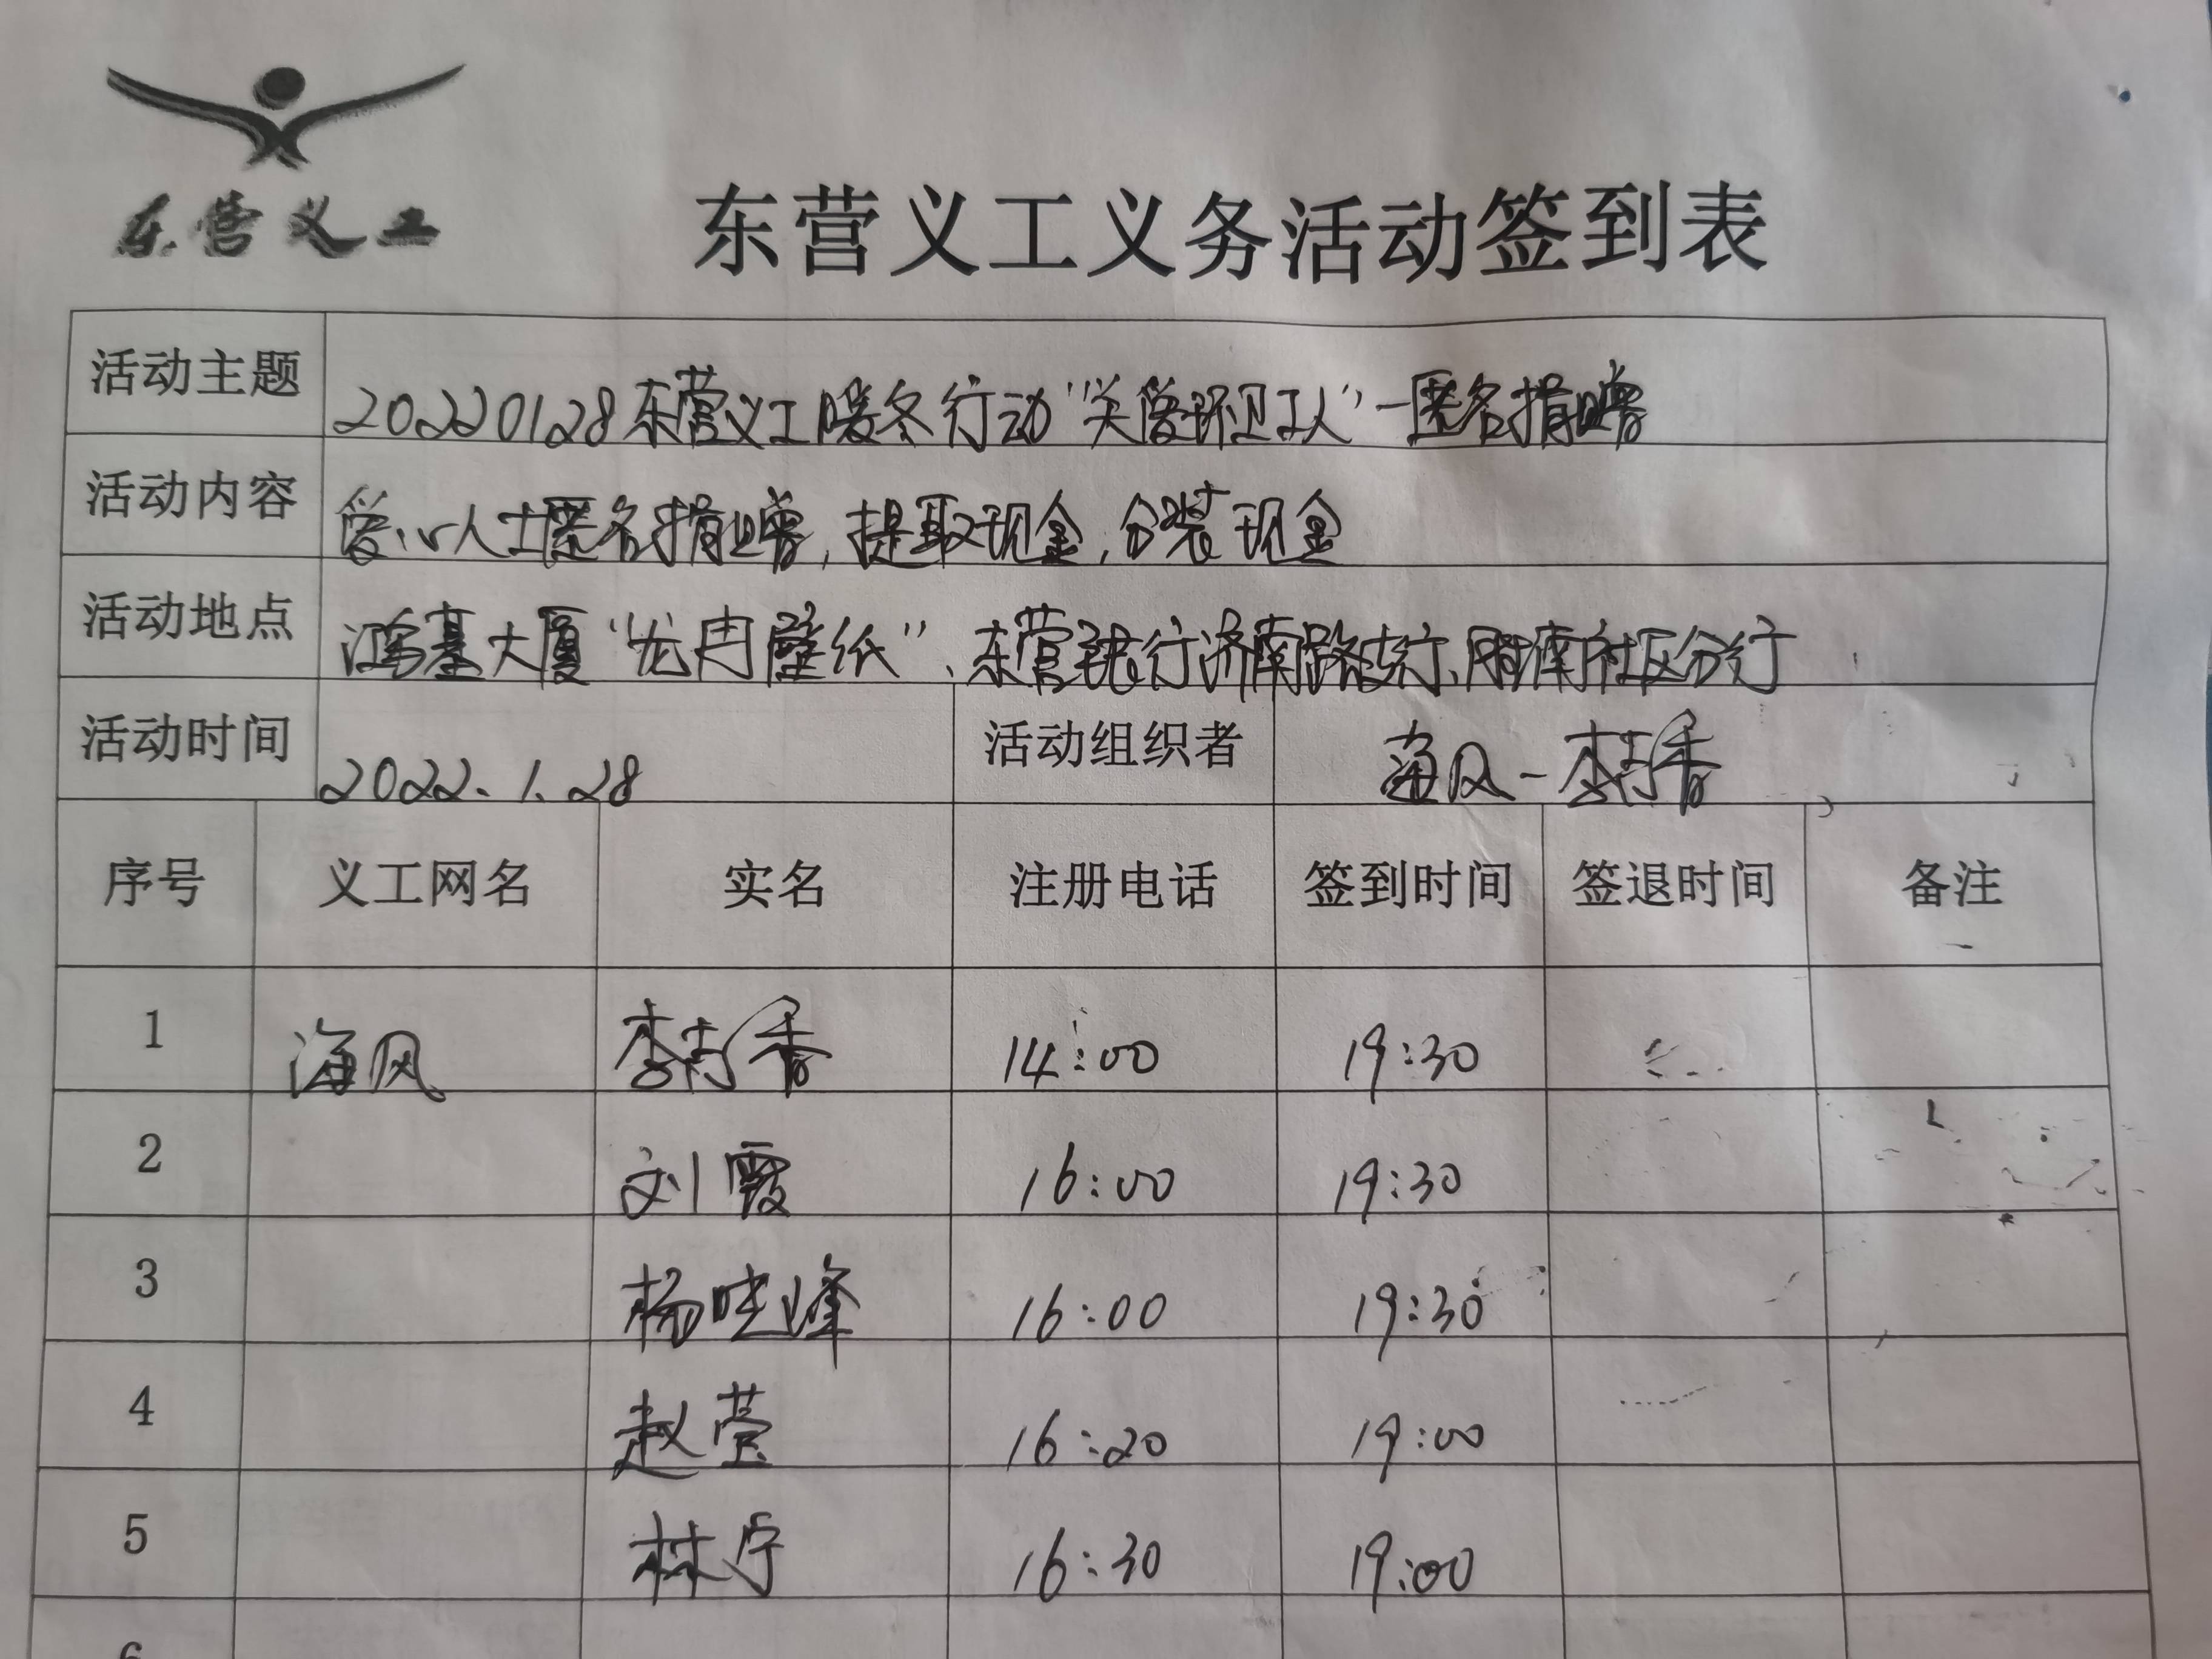 东营义工
东营义工义务活动签到表
活动主题 20220128东营义工暖冬行动“关爱环卫工人”—匿名捐赠
活动内容 爱心人士匿名捐赠,提取现金,分装现金
活动地点 鸿基大厦“龙冉壁纸”、东营银行济南路支行、胜南社区分行
活动时间 2022.1.28 活动组织者 海风-李香
序号 义工网名 实名 注册电话 签到时间 签退时间 备注
1 海风 李香 14:00 19:30
2 刘霞 16:00 19:30
3 杨晓峰 16:00 19:30
4 赵莹 16:20 19:00
5 林宁 16:30 19:00
6